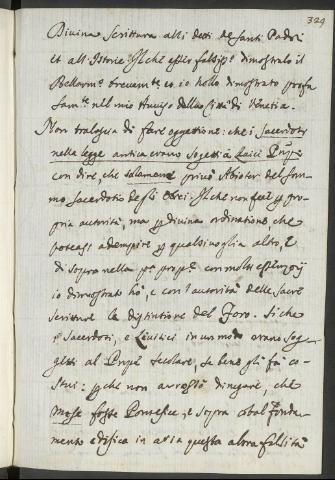 329
Divina Scrittura alli detti de Santi Padri
et all'Istorie: Il che esser falsiss.o dimostralo il
Bellarm.o brevem.te et io hollo dimostrato
sam.te nel mio della Città di Venetia.
Non tralascia di fare oggettione: che i sacerdoti
nella legge antica erano sogetti à Laici
con dire, che solamente privò Abiatar del som-
mo sacerdotio degli Ebrei: Il che non fece
pria autorità, ma divina ordinatione che
adempire qualsivoglia altro, E
di sopra nella con molti
io dimostrato hò, e con l'autorità delle Sacre
Scritture la distintione del Foro. Siche
i Sacerdoti, e Leuitici in un modo erano sog-
getti al secolare, se bene gli fà co-
stui: che non arrossì dinegare, che
Mose fosse Pontefice, e sopra cotal fonda-
mento edifica in aria questa altra falsità